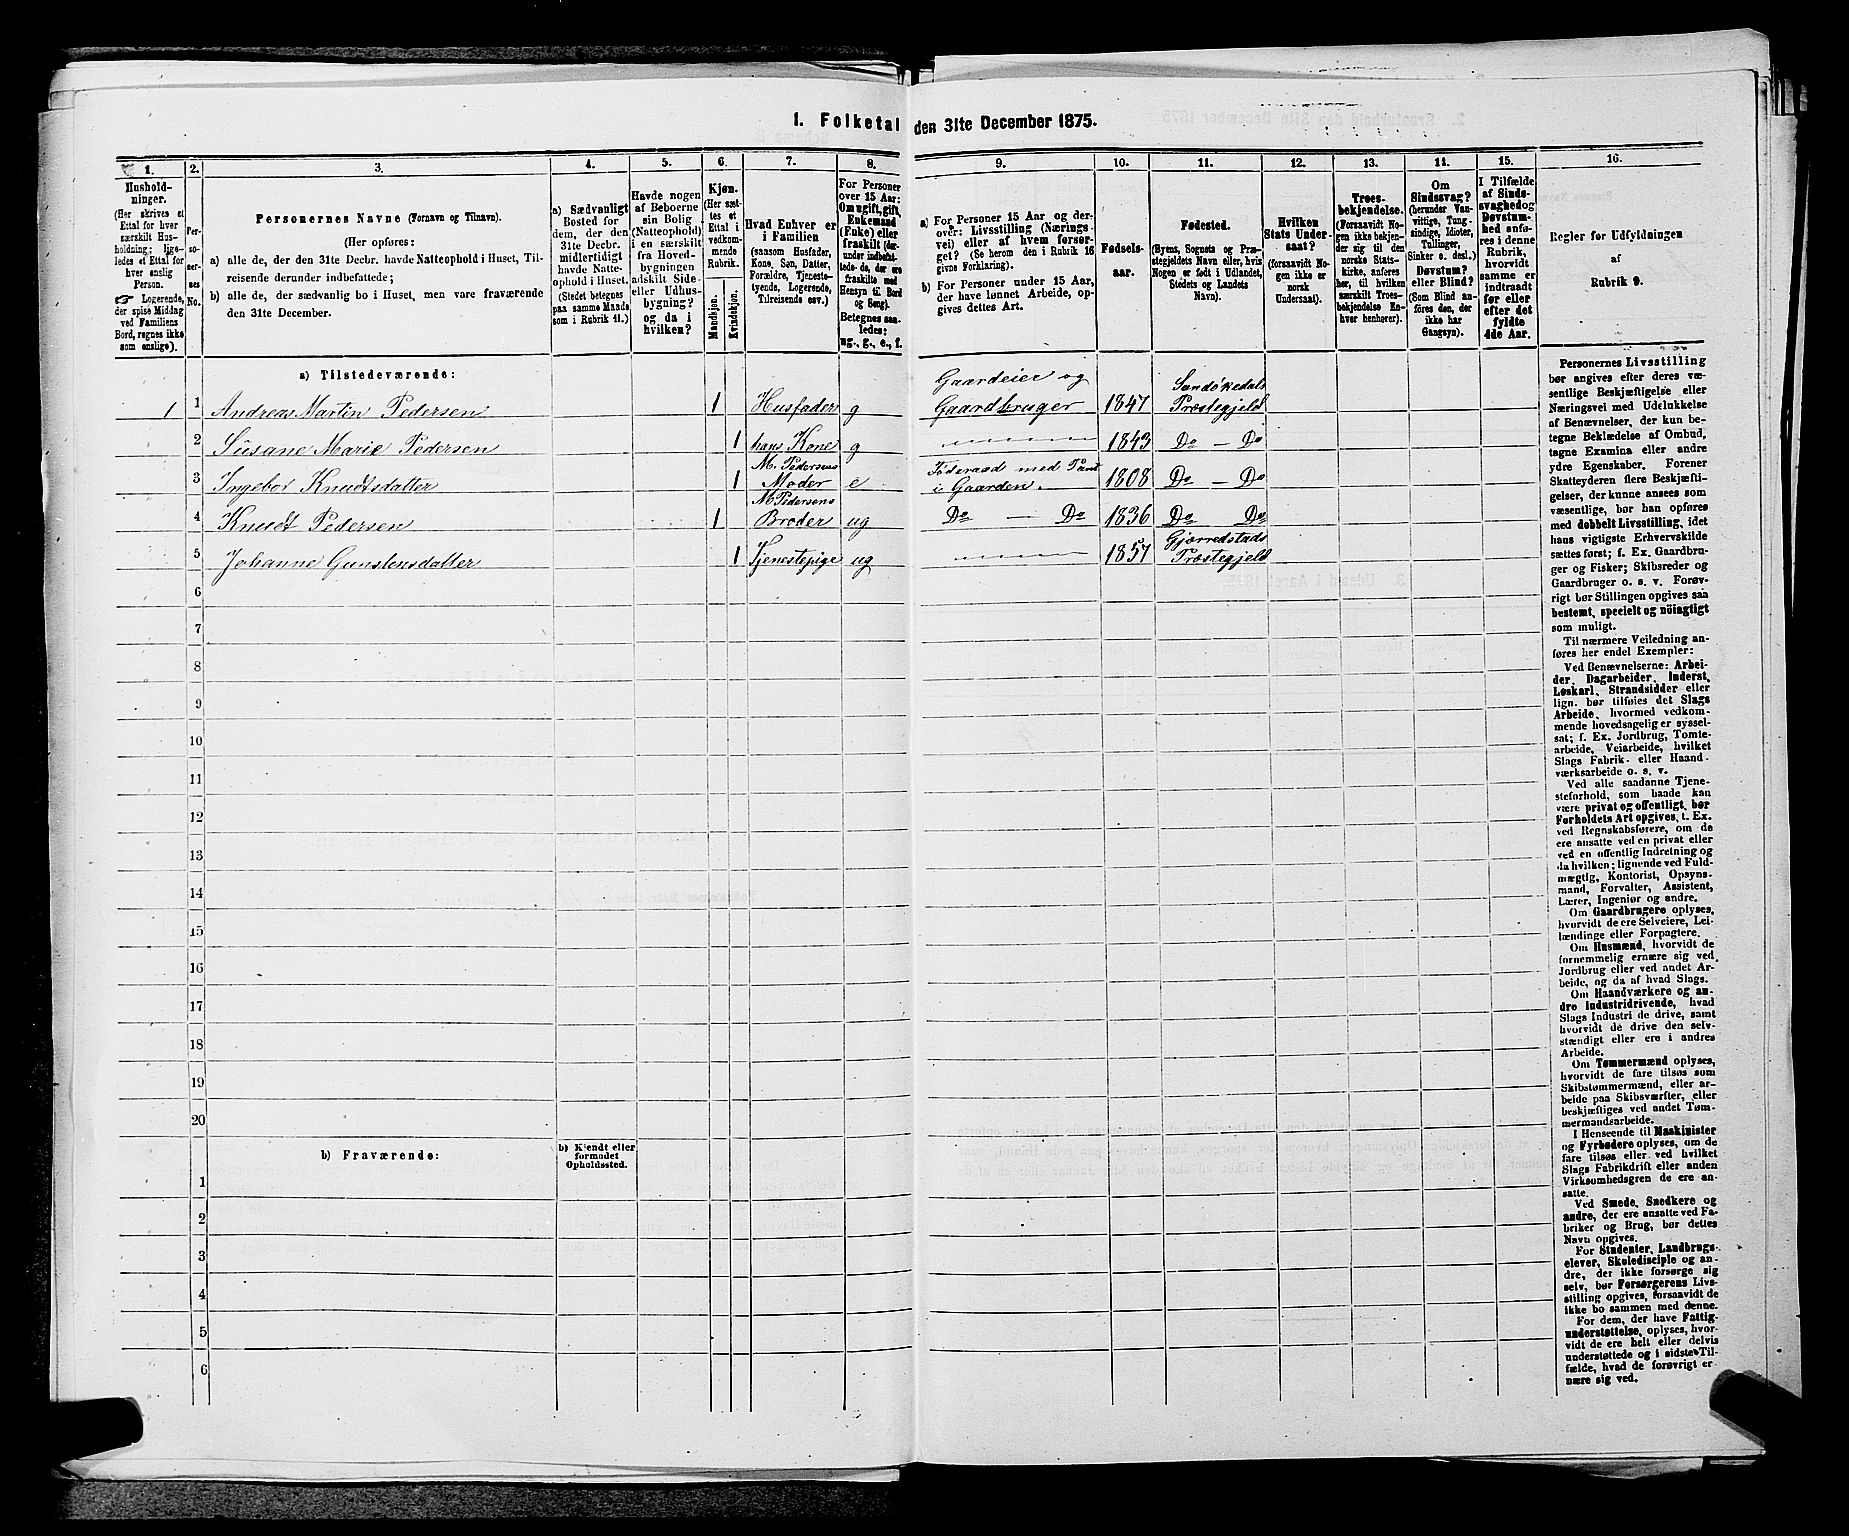 1. Folketal den 31te December 1875.
1.
Hushold-
ninger.
(Her skrives et
Ettal for hver
særskilt Hus-
holdning; lige-
ledes et Ettal for
hver enslig
Person.
☞ Logerende,
der spise Middag
ved Familiens
Bord, regnes ikke
som enslige).
2.
Per-
so-
ner-
nes
No.
3.
Personernes Navne (Fornavn og Tilnavn).
(Her opføres:
a) alle de, der den 31te Decbr. havde Natteophold i Huset, Til-
reisende derunder indbefattede;
b) alle de, der sædvanlig bo i Huset, men vare fraværende
den 31te December.
4.
a) Sædvanligt
Bosted for
dem, der den
31te Decbr.
midlertidigt
havde Natte-
ophold i Huset.
(Stedet betegnes
paa samme Maade
som i Rubrik 11.)
5.
Havde nogen
af Beboerne
sin Bolig
(Natteophold)
i en særskilt
fra Hoved-
bygningen
adskilt Side-
eller Udhus-
bygning?
og da i
hvilken?
6.
Kjøn.
(Her sæt-
tes et
Ettal i
vedkom-
mende
Rubrik.
Mandkjøn.
Kvindekjøn.
7.
Hvad Enhver er
i Familien
(saasom Husfader,
Kone, Søn, Datter,
Forældre, Tjeneste-
tyende, Logerende,
Tilreisende osv.)
8.
For Personer
over 15 Aar:
Om ugift, gift,
Enkemand
(Enke) eller
fraskilt (der-
under indbefat-
tede de, der ere
fraskilte med
Hensyn til Bord
og Seng).
Betegnes saa-
ledes:
ug., g., e., f.
9.
a) For Personer 15 Aar og der-
over: Livsstilling (Nærings-
vei) eller af hvem forsør-
get? (Se herom den i Rubrik 16
givne Forklaring).
b) For Personer under 15 Aar,
der have lønnet Arbeide, op-
gives dettes Art.
10.
Fødsels-
aar.
11.
Fødested.
(Byens, Sognets og Præ-
stegjeldets Navn eller, hvis
Nogen er født i Udlandet,
Stedets og Landets
Navn).
12.
Hvilken
Stats Under-
saat?
(forsaavidt No-
gen ikke er
norsk
Undersaat).
13.
Troes-
bekjendelse.
(Forsaavidt No-
gen ikke bekjen-
der sig til den
norske Stats-
kirke, anføres
her, til hvilken
særskilt Troes-
bekjendelse En-
hver henhører).
14.
Om
Sindssvag?
(herunder Van-
vittige, Tung-
sindige, Idioter,
Tullinger,
Sinker o. desl.)
Døvstum?
eller Blind?
(Som Blind an-
føres den, der
ikke har
Gangsyn).
15.
I Tilfælde
af Sinds-
svaghed og
Døvstum-
hed anfø-
res i denne
Rubrik,
hvorvidt
samme er
indtraadt
før eller
efter det
fyldte
4de Aar.
16.
Regler for Udfyldningen
af
Rubrik 9.
a) Tilstedeværende:
1 1 Andreas Martin Pedersen 1 Husfader g Gaardeier og Gaardbruger 1847 Sandøkedals Præstegjeld
2 Susane Marie Pedersen 1 hans Kone g 1843 Do – Do
3 Ingebor Knudtsdatter 1 M. Pedersens Moder e Føderaad med Part i Gaarden. 1808 Do – Do
4 Knudt Pedersen 1 M. Pedersens Broder ug Do – Do 1836 Do Do
5 Johanne Gunstensdatter 1 Tjenestepige ug 1857 Gjerrestads Præstegjeld
6
7
8
9
10
11
12
13
14
15
16
17
18
19
20
b) Fraværende:
b) Kjendt eller
formodet
Opholdssted.
1
2
3
4
5
6
Personernes Livsstilling
bør angives efter deres væ-
sentlige Beskjæftigelse eller
Næringsvei med Udelukkelse
af Benævnelser, der kun be-
tegne Beklædelse af Ombud,
tagne Examina eller andre
ydre Egenskaber. Forener
Skatteyderen flere Beskjæfti-
gelser, der kunne ansees som
væsentlige, bør han opføres
med dobbelt Livsstilling, idet
hans vigtigste Erhvervskilde
sættes først; f. Ex. Gaardbru-
ger og Fisker; Skibsreder og
Gaardbruger o. s. v. Forøv-
rigt bør Stillingen opgives saa
bestemt, specielt og nöiagtigt
som muligt.
Til nærmere Veiledning an-
føres her endel Exempler:
Ved Benævnelserne: Arbei-
der, Dagarbeider, Inderst,
Løskarl, Strandsidder eller
lign. bør tilføies det Slags
Arbeide, hvormed vedkom-
mende hovedsagelig er syssel-
sat; f. Ex. Jordbrug, Tomte-
arbeide, Veiarbeide, hvilket
Slags Fabrik- eller Haand-
værksarbeide o. s. v.
Ved alle saadanne Tjene-
steforhold, som baade kan
være privat og offentligt, bør
Forholdets Art opgives, t. Ex.
ved Regnskabsførere, om de
ere ansatte ved en privat eller
ved en offentlig Indretning og
da hvilken; lignende ved Fuld-
mægtig, Kontorist, Opsyns-
mand, Forvalter, Assistent,
Lærer, Ingeniør og andre.
Om Gaardbrugere oplyses,
hvorvidt de ere Selveiere, Lei-
lændinge eller Forpagtere.
Om Husmænd, hvorvidt de
fornemmelig ernære sig ved
Jordbrug eller ved andet Ar-
beide, og da af hvad Slags.
Om Haandværkere og an-
dre Industridrivende, hvad
Slags Industri de drive, samt
hvorvidt de drive den selv-
stændigt eller ere i andres
Arbeide.
Om Tømmermænd oplyses,
hvorvidt de fare tilsøs som
Skibstømmermænd, eller ar-
beide paa Skibsværfter, eller
beskjæftiges ved andet Tøm-
mermandsarbeide.
I Henseende til Maskinister
og Fyrbødere oplyses, om de
fare tilsøs eller ved hvilket
Slags Fabrikdrift eller anden
Virksomhedsgren de ere an-
satte.
Ved Smede, Snedkere og
andre, der ere ansatte ved Fa-
briker og Brug, bør dettes
Navn opgives.
For Studenter, Landbrugs-
elever, Skoledisciple og an-
dre, der ikke forsørge sig
selv, bør Forsørgerens Livs-
stilling opgives, forsaavidt de
ikke bo sammen med denne.
For dem, der have Fattig-
understøttelse, oplyses, hvor-
vidt de ere helt eller delvis
understøttede og i sidste Til-
fælde, hvad de forøvrigt er-
nære sig ved.